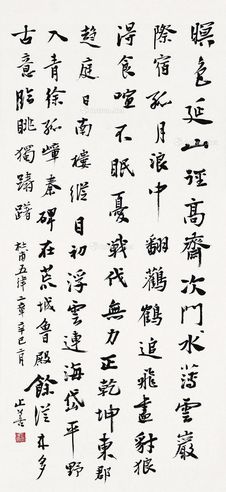 暝色延山徑高齋次門水薄雲巖
際宿孤月浪中翻鸛鶴追飛盡豺狼
得食喧不眠憂戰伐無力正乾坤東郡
趨庭日南樓縱目初浮雲連海岱平野
入青徐孤嶂秦碑在荒城魯殿餘從来多
古意臨眺獨躊躇 杜甫五律二章辛巳月
止善